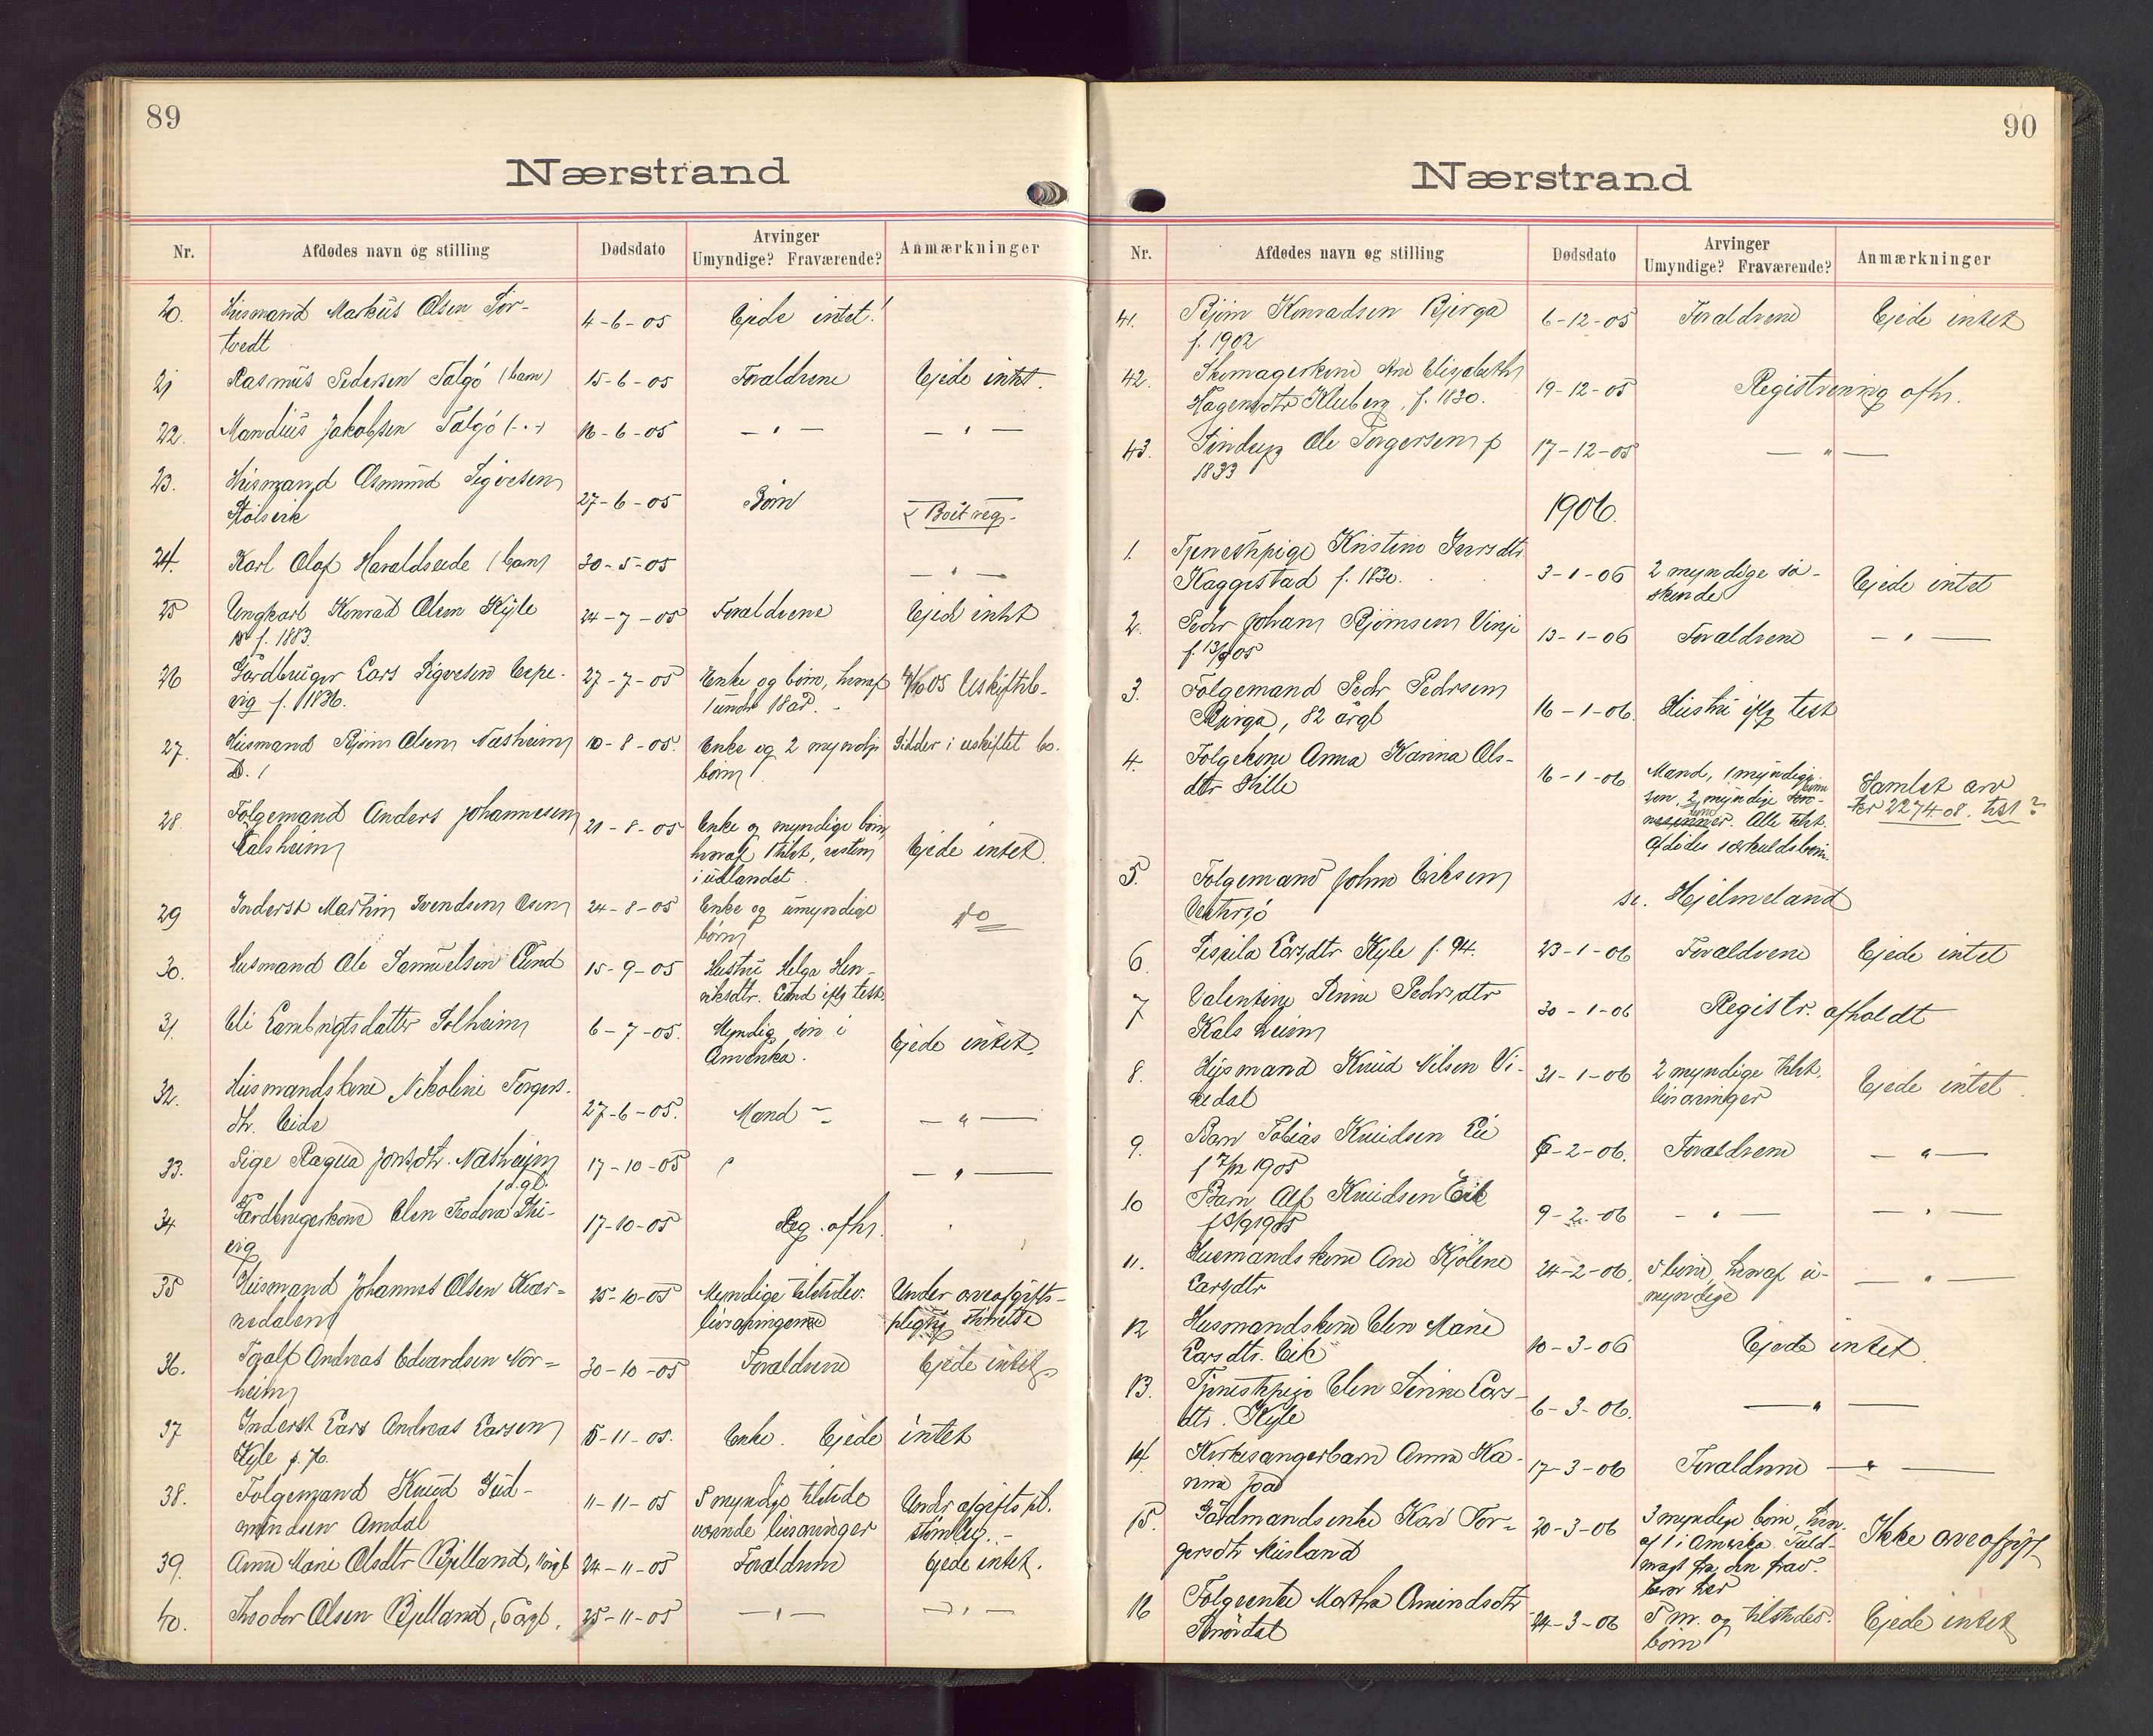 89
Nærstrand
Nr. Afdødes navn og stilling Dødsdato Arvinger Umyndige? Fraværende? Anmærkninger
20. Husmand Markus Olsen Tor-
tvedt 4-6-05 Ejede intet!
21 Rasmus Pedersen Talgö (barn) 15-6-05 Forældrene Ejede intet.
22. Mandius Jakobsen Talgö (-"-) 16-6-05 — " — — " —
23. Husmand Osmund Sigvesen
Stölserk 27-6-05 Börn Boet reg.
24. Karl Olaf Haraldseide (barn) 30-5-05 — " —
25 Ungkarl Konrad Olsen Kyle
f. 1883. 24-7-05 Forældrene Ejed intet
26 Gårdbruger Lars Sigvesen Lerpe-
vig f. 1836. 27-7-05 Enke og börn, hvoraf
1 under 18 år. Uskifteb-
27. Husmand Björn Olsen Næsheim 10-8-05. Enke og 2 myndige
börn Sidder i uskiftet bo.
28. Folgemand Anders Johannesen
Kalsheim 21-8-05 Enke og myndige börn,
hvoraf 1 tilst, resten
i udlandet Ejede intet.
29 Inderst Martin Svendsen Åsen 24-8-05 Enke og umyndige
börn do
30. Husmand Ole Samuelsen Lund 15-9-05 Hustru Helga Hen-
riksdtr. Lund iflg test.
31. Eli Lambrigtsdatter Solheim 6-7-05. Myndig sön i
Amerika. Ejede intet.
32. Husmandskone Nikoline Torgers-
dtr. Eide 27-6-05. Mand — — " —
33. Pige Ragna Jonsdtr. Næsheim
1 d. gl. 17-10-05 " — " —
34 Gårdbrugerkone Elen Teodora
vig 17-10-05 Reg. afh.
35 Husmand Johannes Olsen Kvær-
nedalen 25-10-05 Myndige tilstedev.
livsarvinger Under arveafgifts-
pligtig störrelse
36. Toralf Andreas Edvardsen Nor-
heim 30-10-05 Forældrene Ejede intet
37 Inderst Lars Andreas Larsen
Kyle f. 76. 5-11-05. Enke. Ejede intet
38. Folgemand Knud Gud-
mundsen Amdal 11-11-05 5 myndige tilstede
værende livsarvinger Under afgiftspl.
störrelse.
39. Anna Marie Olsdtr Bjelland, 24-11-05 Forældrene Ejede intet.
40. Theodor Olsen Bjelland, 25-11-05 — " — — " —
90
Nærstrand
Nr. Afdødes navn og stilling Dødsdato Arvinger Umyndige? Fraværende? Anmærkninger
41. Björn Konradsen Bjerga
f. 1902 6-12-05 Forældrene Ejede intet
42. Skomagerkone Ane Elisabeth
Hagensdtr Kluberg, f. 1830. 19-12-05 Registrering afh.
43. Ole Torgersen f
1833 17-12-05 — " —
1906.
1. Tjenestepige Kristine Iversdtr
Kaggestad f. 1830. 3-1-06 2 myndige sö-
skende Ejede intet
2. Peder Johan Björnsen Vinje 13-1-06 Forældrene — " —
3. Folgemand Peder Pedersen
Bjerga, 82 årgl 16-1-06. Hustru iflg test
4. Folgekone Anna Karina Ols-
dtr Hille 16-1-06 Mand, 1 myndige
sön, 2 myndige
Alle tilst.
Afdödes særkuldsbörn. Samlet arv
Kr 2274.08. test?
5. Folgemand John Eriksen
se. Hjelmeland
6 Siseila Larsdtr Kyle f. 94. 23-1-06 Forældrene Ejede intet
7 Valentine Sinne Pedersdtr
Kalsheim 30-1-06 Registr. afholdt
8. Husmand Knud Nilsen Vi-
kedal 31-1-06 2 myndige tilst.
livsarvinger Ejede intet.
9. Barn Tobias Knudsen
f 7/12 1905 6-2-06. Forældrene — " —
10 Barn Alf Knudsen Eik 9-2-06 — " — — " —
11. Husmandskone Ane Kjölene
Larsdtr 24-2-06. 5 börn, hvoraf u-
myndige — " —
12 Husmandskone Elen Marie
Larsdtr. Eik 10-3-06 Ejede intet.
13. Tjenestepige Elen Sinne Lars-
dtr. Kyle 6-3-06. — " —
14. Kirkesangerbarn Anna Ka-
rina Joa 17-3-06 Forældrene — " —
15. Gårdmandsenke Kari Tor-
gersdtr Misland 20-3-06 3 myndige börn, hvor-
af 1 i Amerika. Fuld-
magt fra den frav. Ikke arveafgift
16 Folgeenke Martha Amundsdtr 24-3-06 5 m. og tilstedev.
börn Ejede intet